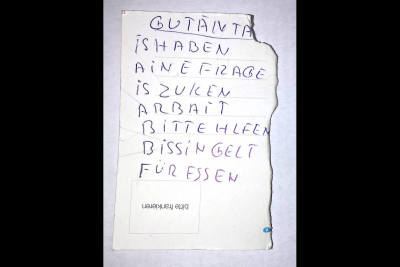 GUTÄNTA
iSHABEN
AINEFRAGE
iSZUKEN
ARBAIT
BITTEHLFEN
BISSINGELT
FÜRESSEN
bitte frankieren